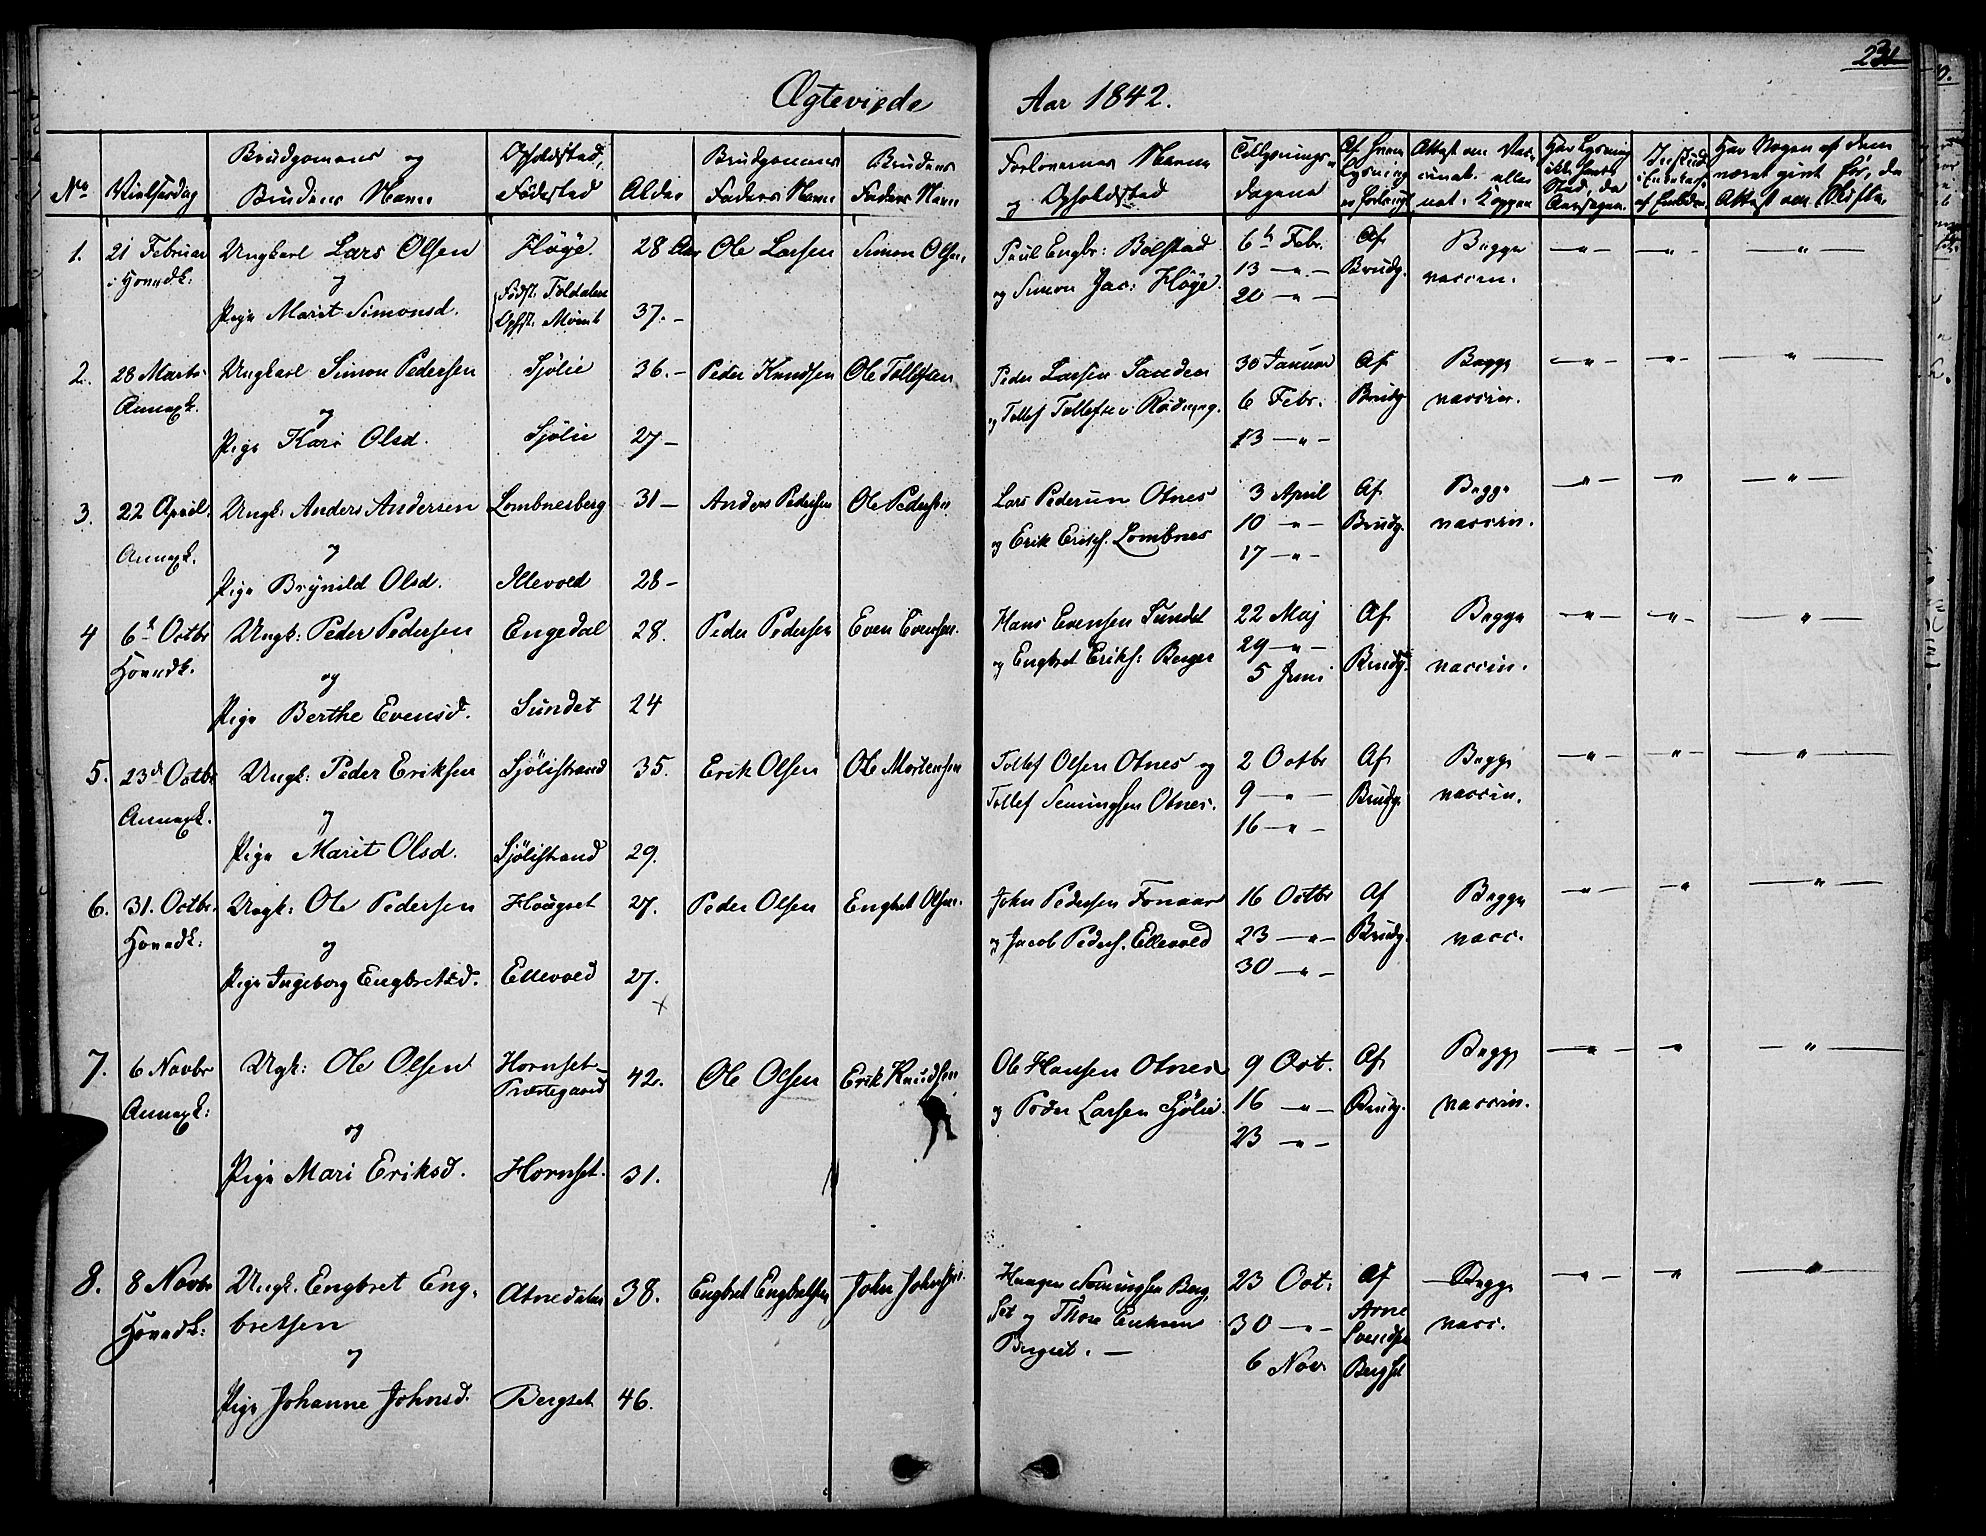 231
Ægteviede Aar 1842.
No
Vielsesdag
Brudgomens og
Brudens Navn
Opholdsted,
Fødested
Alder
Brudgomens
Faders Navn
Brudens
Faders Navn
Forlovernes Navne
og Opholdsted
Tillysnings-
dagene
Af hvem
Lysning
er forlangt
Attest om Vac-
cinat: eller
nat: Kopper
Har Lysning
ikke havt
Sted, da
Aarsagen.
Har Nogen af dem
været givt før, da
Attest om Skifte.
1. 21 Februar Ungkarl Lars Olsen Høye. 28 Aar Ole Larsen Simon Olsen,
i Hovedk: og Fødst: Toldalen
Pige Marit Simonsd. Opst. Moent 37.-
Paul Engbr: Bolstad 6h Febr. Af Begge
og Simon Jac: Høye. 13 -"- Brudg. vaccin.
20 -"-
2. 28 Marts Ungkarl Simon Pedersen Sjølie 36.- Peder Knudsen Ole Tollefsen
Annexk. og
Pige Kari Olsd. Sjølie 27-
Peder Larsen Sanden 30 Januar Af Begge
og Tollef Tollefsen Rødning. 6 Febr. Brudg. vaccin.
13 -"-
3. 22 April. Ungk: Anders Andersen Lombnesberg 31- Anders Pedersen Ole Pedersen
Annexk. og
Pige Brynild Olsd. Illevold 28-
Lars Pedersen Otnes 3 April Af Begge
og Erik Eriks. Lombnes 10 -"- Brudg. vaccin.
17 -"-
4 6t Octbr Ungk: Peder Pedersen Engedal 28. Peder Pedersen Even Evensen.
Hovedk. og
Pige Berthe Evensd. Sundet 24
Hans Evensen Sundet 22 Maj Af Begge
og Engbret Eriks: Berger 29 -"- Brudg. vaccin.
5 Juni
5. 23d Octbr Ungk: Peder Eriksen Sjølistrand 35. Erik Olsen Ole Mortensen
Annexk. og
Pige Marit Olsd. Sjølistrand 29.
Tollef Olsen Otnes og 2 Octbr Af Begge
Tollef Semingsen Otnes. 9 -"- Brudg vaccin.
16 -"-
6. 31. Octbr. Ungk: Ole Pedersen Hougset 27. Peder Olsen Engbret Olsen.
Hovedk: og
Pige Ingeborg Engbretsd. Ellevold 27.
John Pedersen Fonaas 16 Octbr Af Begge
og Jacob Peders. Ellevold 23 -"- Brudg. vacc.
30 -"-
7. 6 Novbr Ugk: Ole Olsen Hornset- 42. Ole Olsen Erik Knudsen
Annexk: Præstegaard
og
Pige Mari Eriksd. Hornset. 31.
Ole Hansen Otnes 9 Oct. Af Begge
og Peder Larsen Sjølie. 16 -"- Brudg. vaccin.
23 -"-
8. 8 Novbr Ungk. Engbret Eng- Atnedalen 38. Engbret Engbretsen John Johnsen.
Hovedk: bretsen
og
Pige Johanne Johnsd. Bergset 46.
Haagen Semingsen Berg- 23 Oct. Af Begge
set og Thore 30 -"- Arne vacc.
Bergset. - 6 Nov Svendsen
Bergset